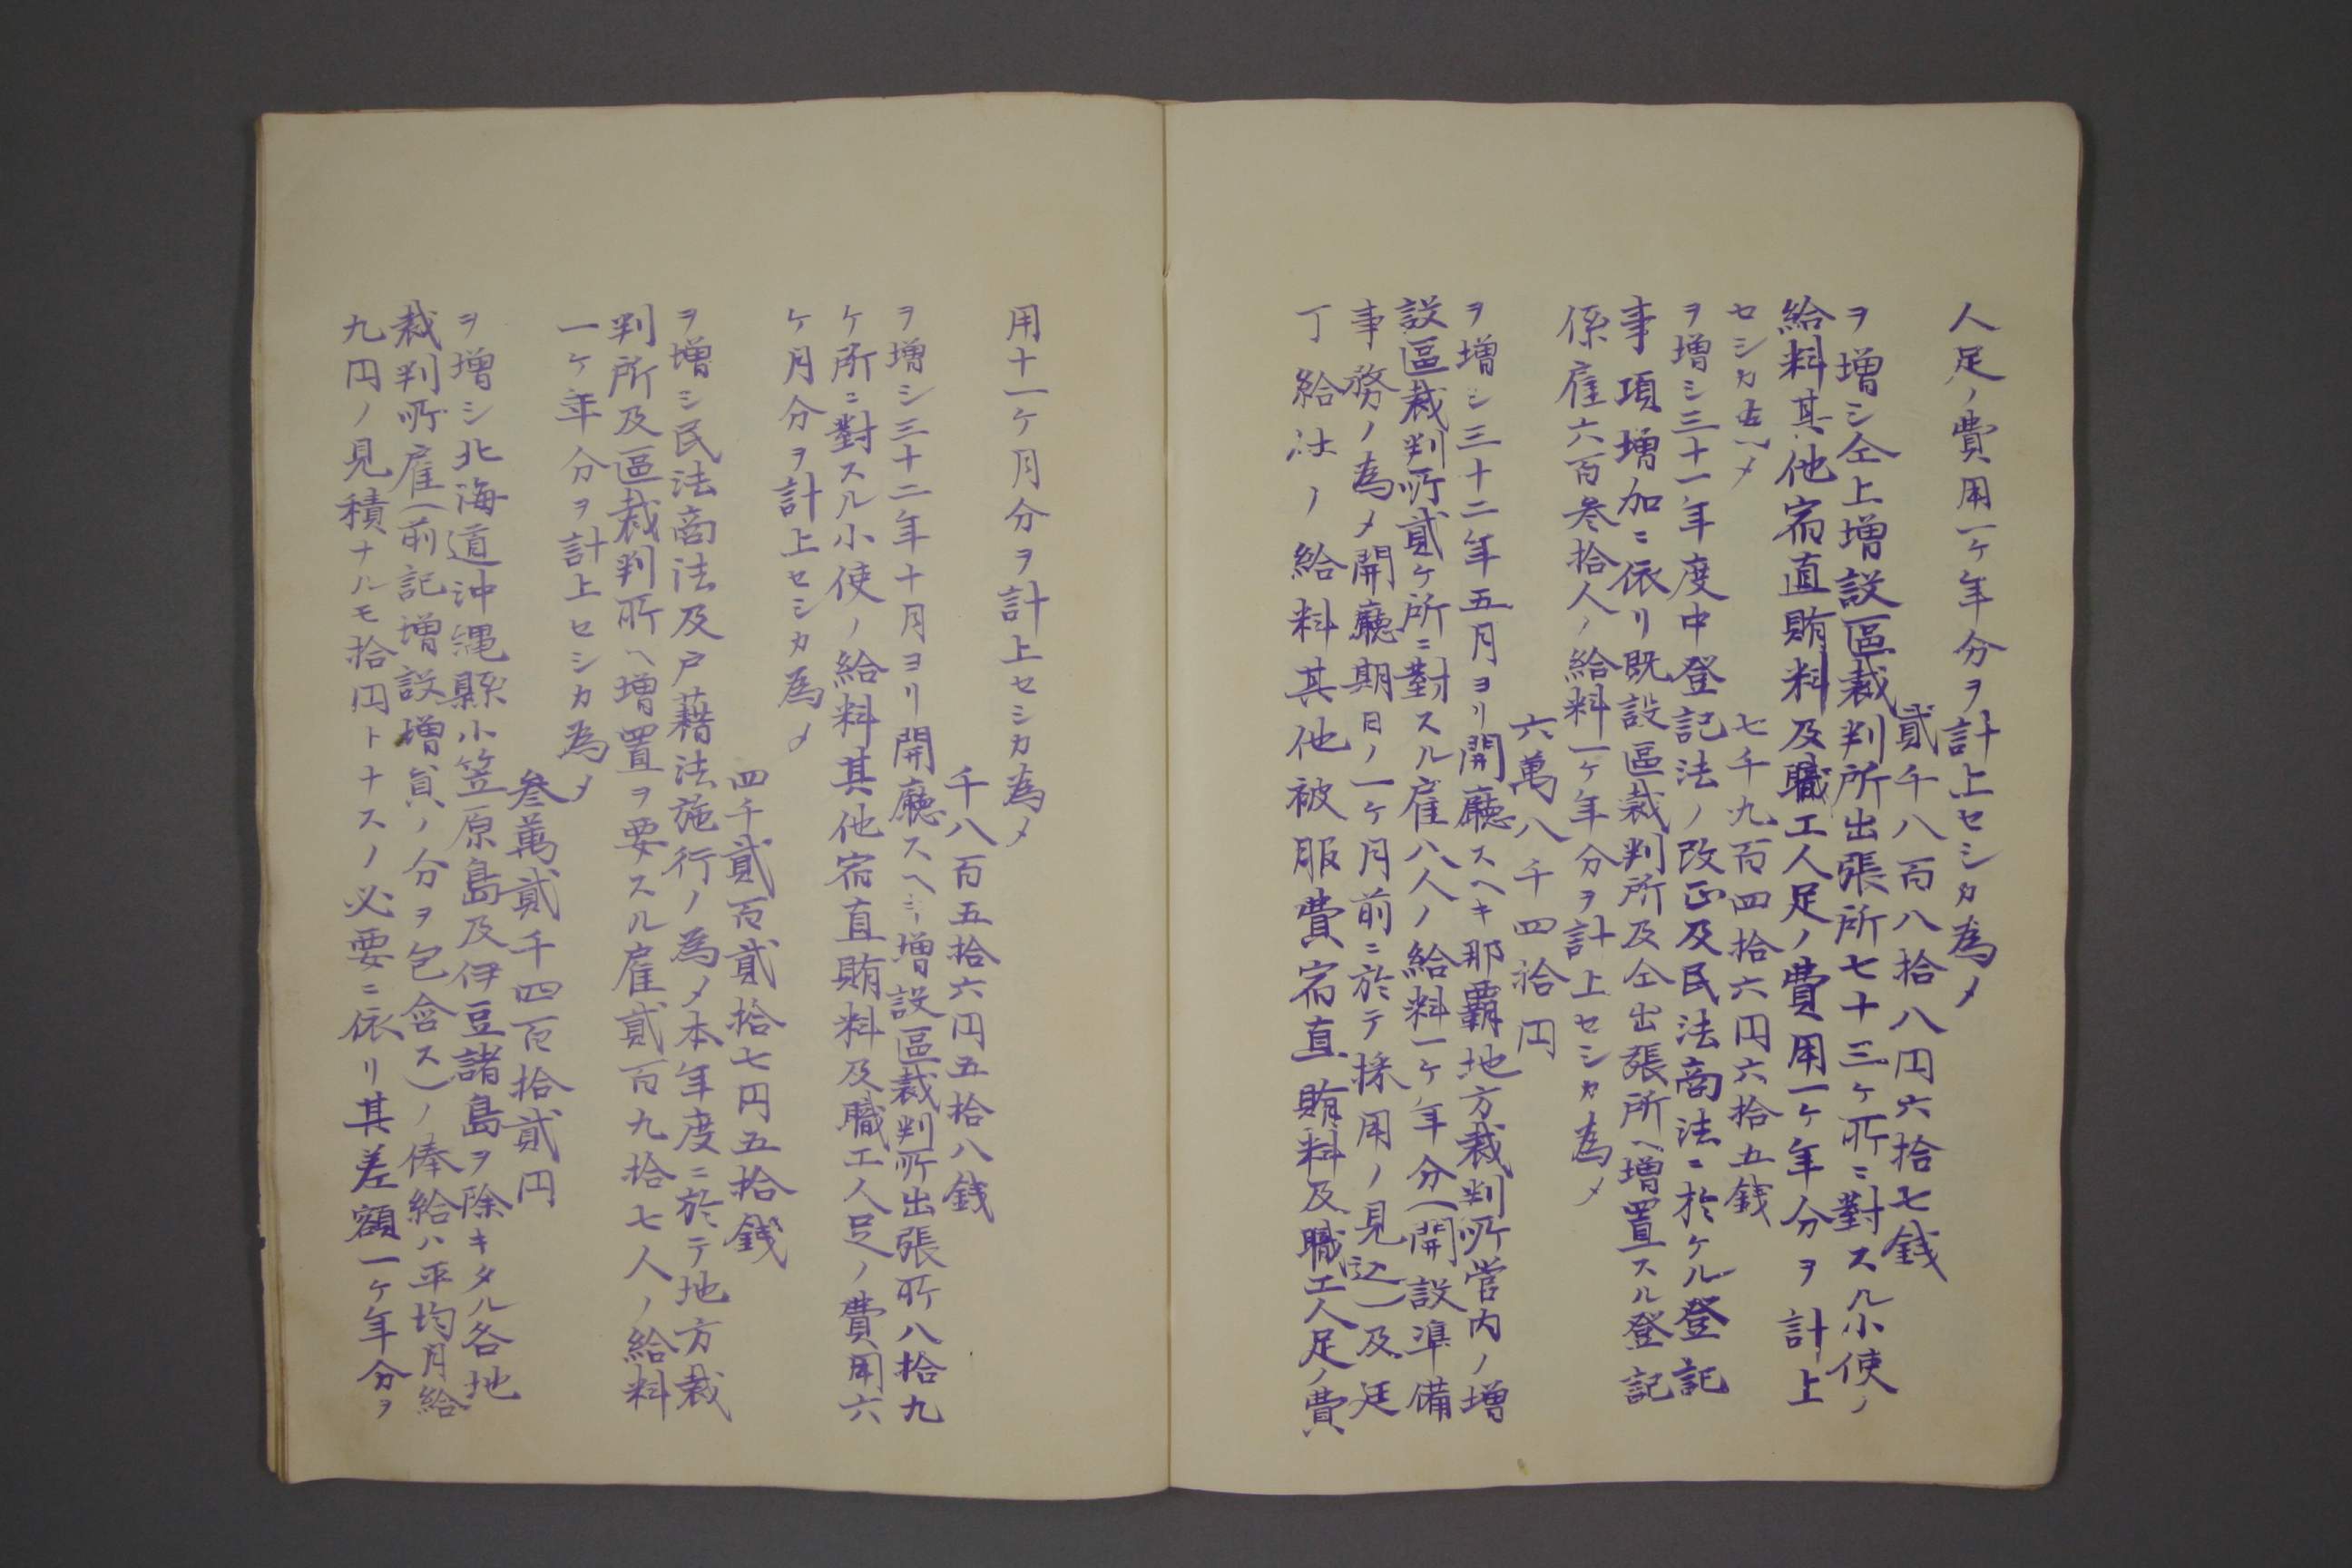 人足ノ費用一ケ年分ヲ計上セシカ為メ
貳千八百八拾八円六拾七銭
ヲ増シ仝上増設區裁判所出張所七十三ケ所ニ對スル小使ノ
給料其他宿直賄料及職工人足ノ費用一ケ年分ヲ計上
セシカ為メ
七千九百四拾六円六拾五銭
ヲ増シ三十一年度中登記法ノ改正及民法商法ニ於ケル登記
事項増加ニ依リ既設區裁判所及仝出張所ヘ増置スル登記
係雇六百参拾人ノ給料一ケ年分ヲ計上セシカ為メ
六萬八千四拾円
ヲ増シ三十二年五月ヨリ開廳スヘキ那覇地方裁判所管内ノ増
設區裁判所貳ケ所ニ對スル雇八人ノ給料一ケ年分(開設準備
事務ノ為メ開廳期日ノ一ケ月前ニ於テ採用ノ見込)及廷
丁給仕ノ給料其他被服費宿直賄料及職工人足ノ費
用十一ケ月分ヲ計上セシカ為メ
千八百五拾六円五拾八銭
ヲ増シ三十二年十月ヨリ開廳スヘキ増設區裁判所出張所八拾九
ケ所ニ對スル小使ノ給料其他宿直賄料及職工人足ノ費用六
ケ月分ヲ計上セシカ為メ
四千貳百貳拾七円五拾銭
ヲ増シ民法商法及戸籍法施行ノ為メ本年度ニ於テ地方裁
判所及區裁判所ヘ増置ヲ要スル雇貳百九拾七人ノ給料
一ケ年分ヲ計上セシカ為メ
参萬貳千四百拾貳円
ヲ増シ北海道沖縄縣小笠原島及伊豆諸島ヲ除キタル各地
裁判所雇(前記増設増員ノ分ヲ包含ス)ノ俸給ハ平均月給
九円ノ見積ナルモ拾円トナスノ必要ニ依リ其差額一ケ年分ヲ